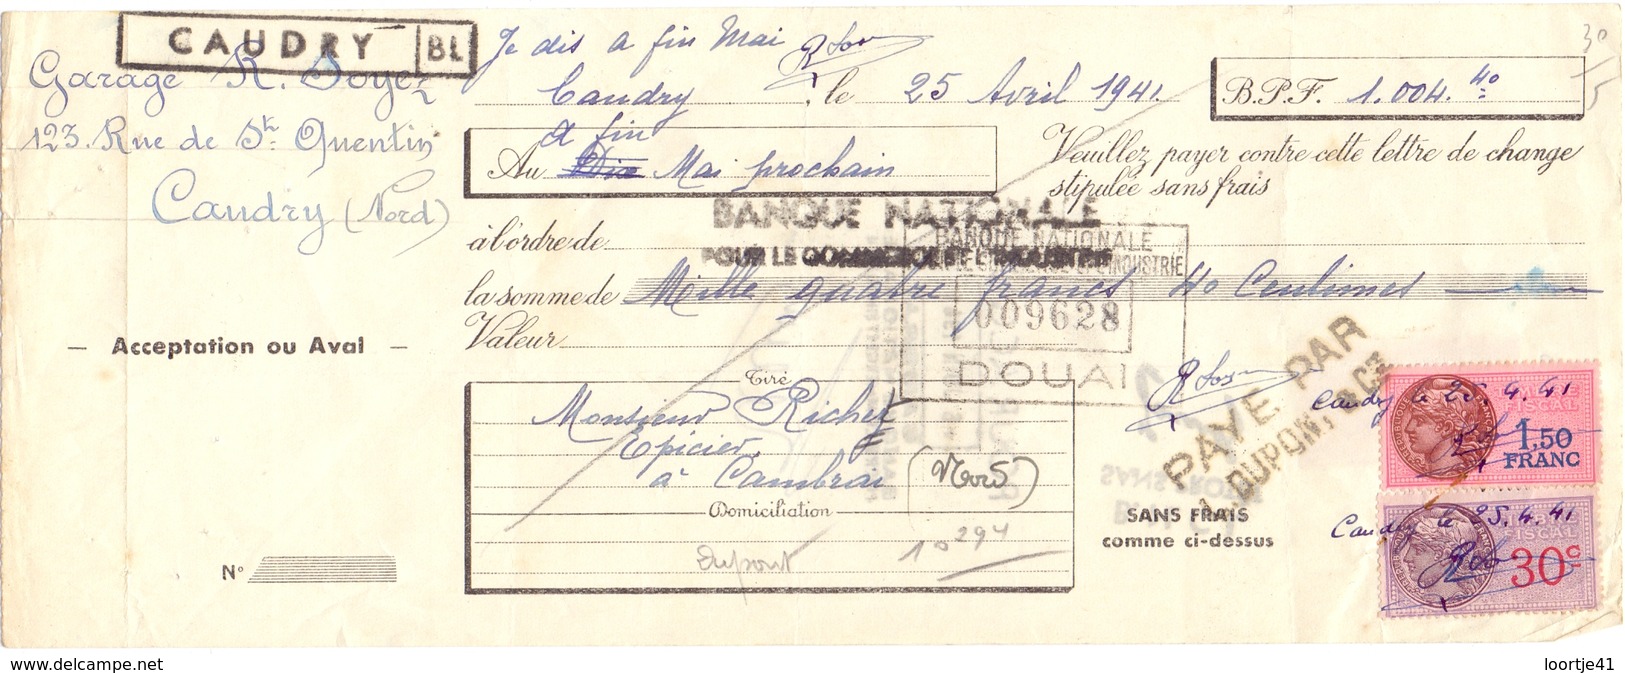 CAUDRY BL
Garage R. Soyez
123. Rue de St. Quentin
Caudry (Nord)
Je dis a fin Mai
Caudry, le 25 Avril 1941.
B.P.F. 1.004.40
30
5
a fin
Au Mai prochain
Veuillez payer contre cette lettre de change
stipulée sans frais
BANQUE NATIONALE
POUR LE COMMERCE ET L'INDUSTRIE
à l'ordre de
BANQUE NATIONALE
POUR LE COMMERCE ET L'INDUSTRIE
009628
DOUAI
la somme de Mille quatre francs 40 Centimes
Valeur
— Acceptation ou Aval —
Tiré
Monsieur Richez
Epicier
à Cambrai (Nord)
Domiciliation
Dupont
10294
N°
PAYE PAR
DUPONT & Cie
SANS FRAIS
comme ci-dessus
Caudry le 25.4.41
1,50
FRANC
Caudry le 25.4.41
FISCAL
30c
loortje41